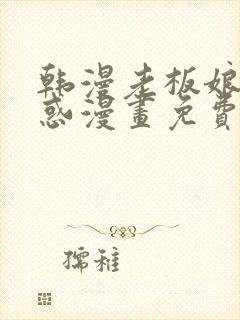 韩漫老板娘
惑漫畫免費
孺稚